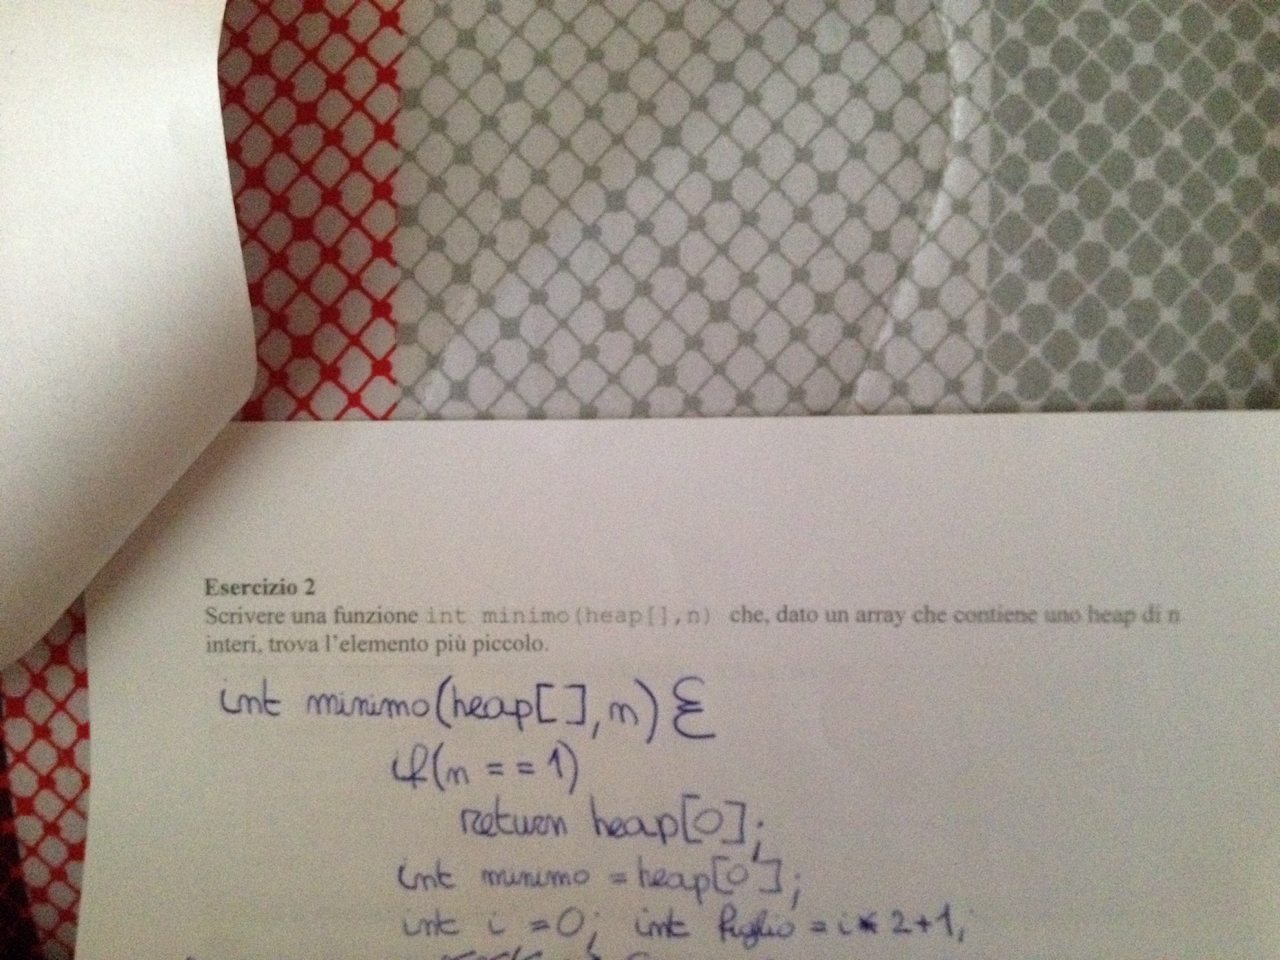 Esercizio 2
Scrivere una funzione int minimo(heap[],n) che, dato un array che contiene uno heap di n
interi, trova l'elemento più piccolo.
int minimo(heap[],n){
if(n==1)
return heap[0];
int minimo = heap[0];
int i =0; int figlio = i*2+1;